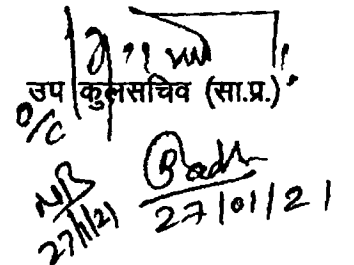 उप कुलसचिव (सा.प्र.)
O/C
NB
27/1/21
27/01/21